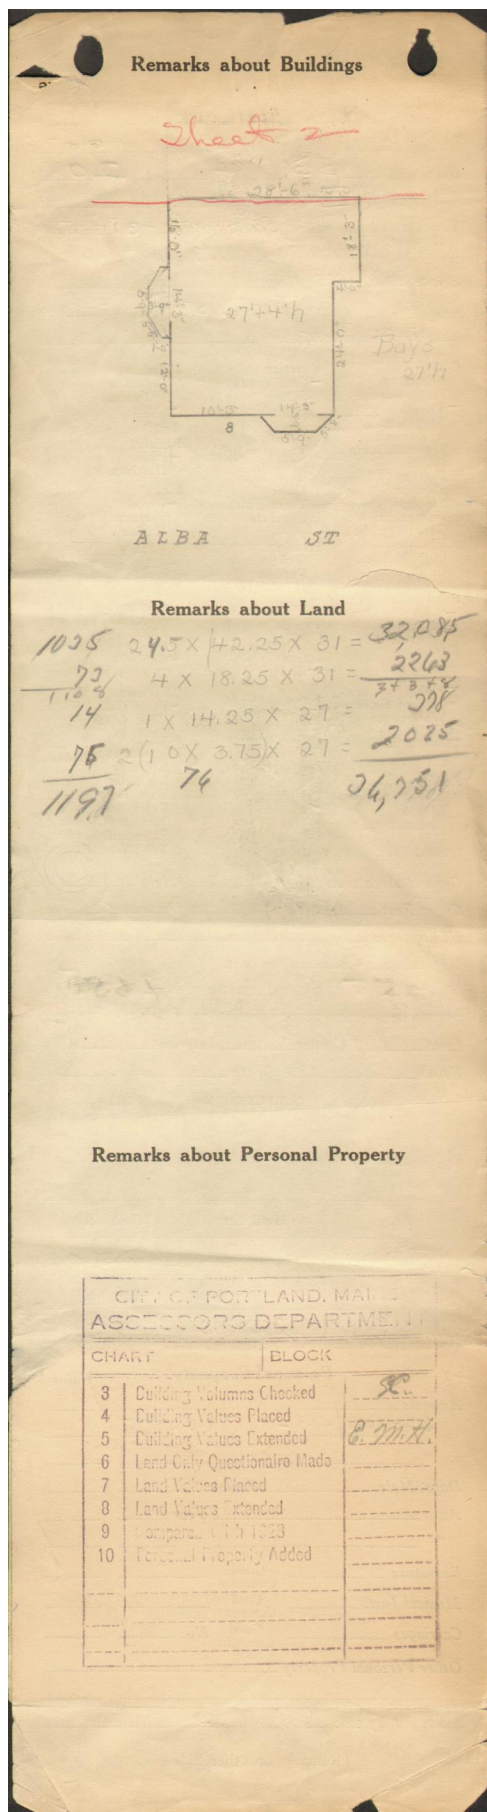 Remarks about Buildings
Sheet 2
28'-6"
16'-0"
18'-3"
14'-3"
27'+4'h
24'-0"
Bays
27'h
12'-0"
8
ALBA ST
Remarks about Land
1035 24.5 X 42.25 X 31 = 32,085
73 4 X 18.25 X 31 = 2263
1108
14 1 X 14.25 X 27 =
75 2(10 X 3.75) X 27 = 2025
1197 74
Remarks about Personal Property
CITY OF PORTLAND, MAINE
ASSESSORS DEPARTMENT
CHART BLOCK
3 Building Volumns Checked
4 Building Values Placed
5 Building Values Extended E.M.H.
6 Land Only Questionaire Made
7 Land Values Placed
8 Land Values Extended
9 Compared With 1923
10 Personal Property Added